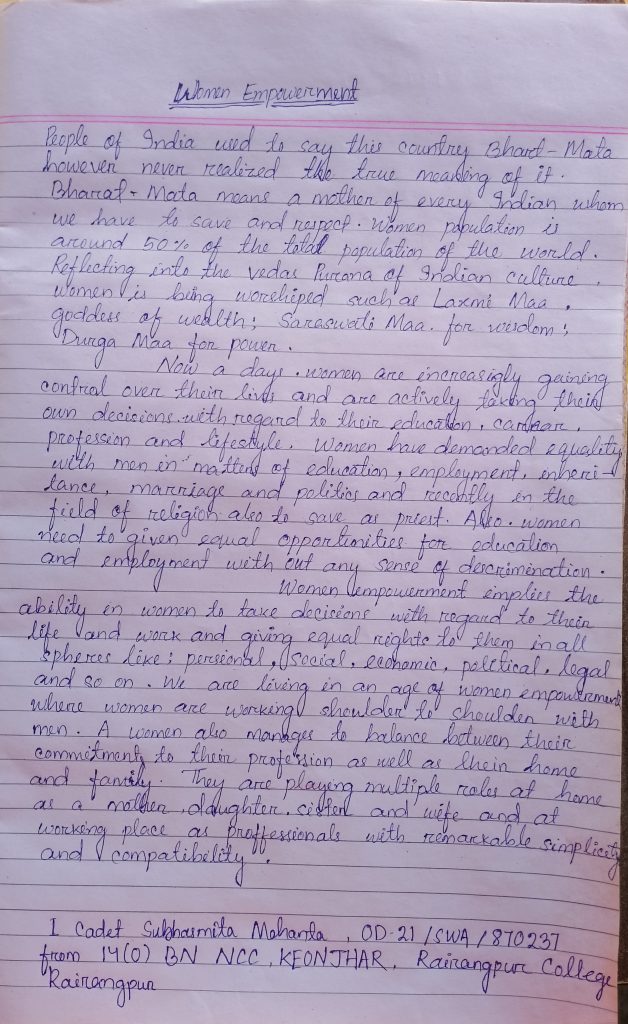 Women Empowerment
People of India used to say this country Bharat-Mata
however never realized the true meaning of it.
Bharat-Mata means a mother of every Indian whom
we have to save and respect. Women population is
around 50% of the total population of the world.
Reflecting into the Vedas Purana of Indian culture,
women is being worshiped such as Laxmi Maa,
goddess of wealth; Saraswati Maa. for wisdom;
Durga Maa for power.
Now a days. women are increasigly gaining
control over their lives and are actively taking their
own decisions with regard to their education, carrear,
profession and lifestyle. Women have demanded equality
with men in matters of education, employment, inheri-
tance, marriage and politics and recently in the
field of religion also to save as priest. Also. women
need to given equal opportunities for education
and employment with out any sense of descrimination.
Women empowerment implies the
ability in women to take decisions with regard to their
life and work and giving equal rights to them in all
spheres like: personal, social, economic, political, legal
and so on. We are living in an age of women empowerment
where women are working shoulder to shoulder with
men. A women also manages to balance between their
commitments to their profession as well as their home
and family. They are playing multiple roles at home
as a mother, daughter, sister and wife and at
working place as proffessionals with remarkable simplicity
and compatibility.
I Cadet Subhasmita Mahanta, OD-21/SWA/870237
from 14(O) BN NCC, KEONJHAR, Rairangpur College,
Rairangpur